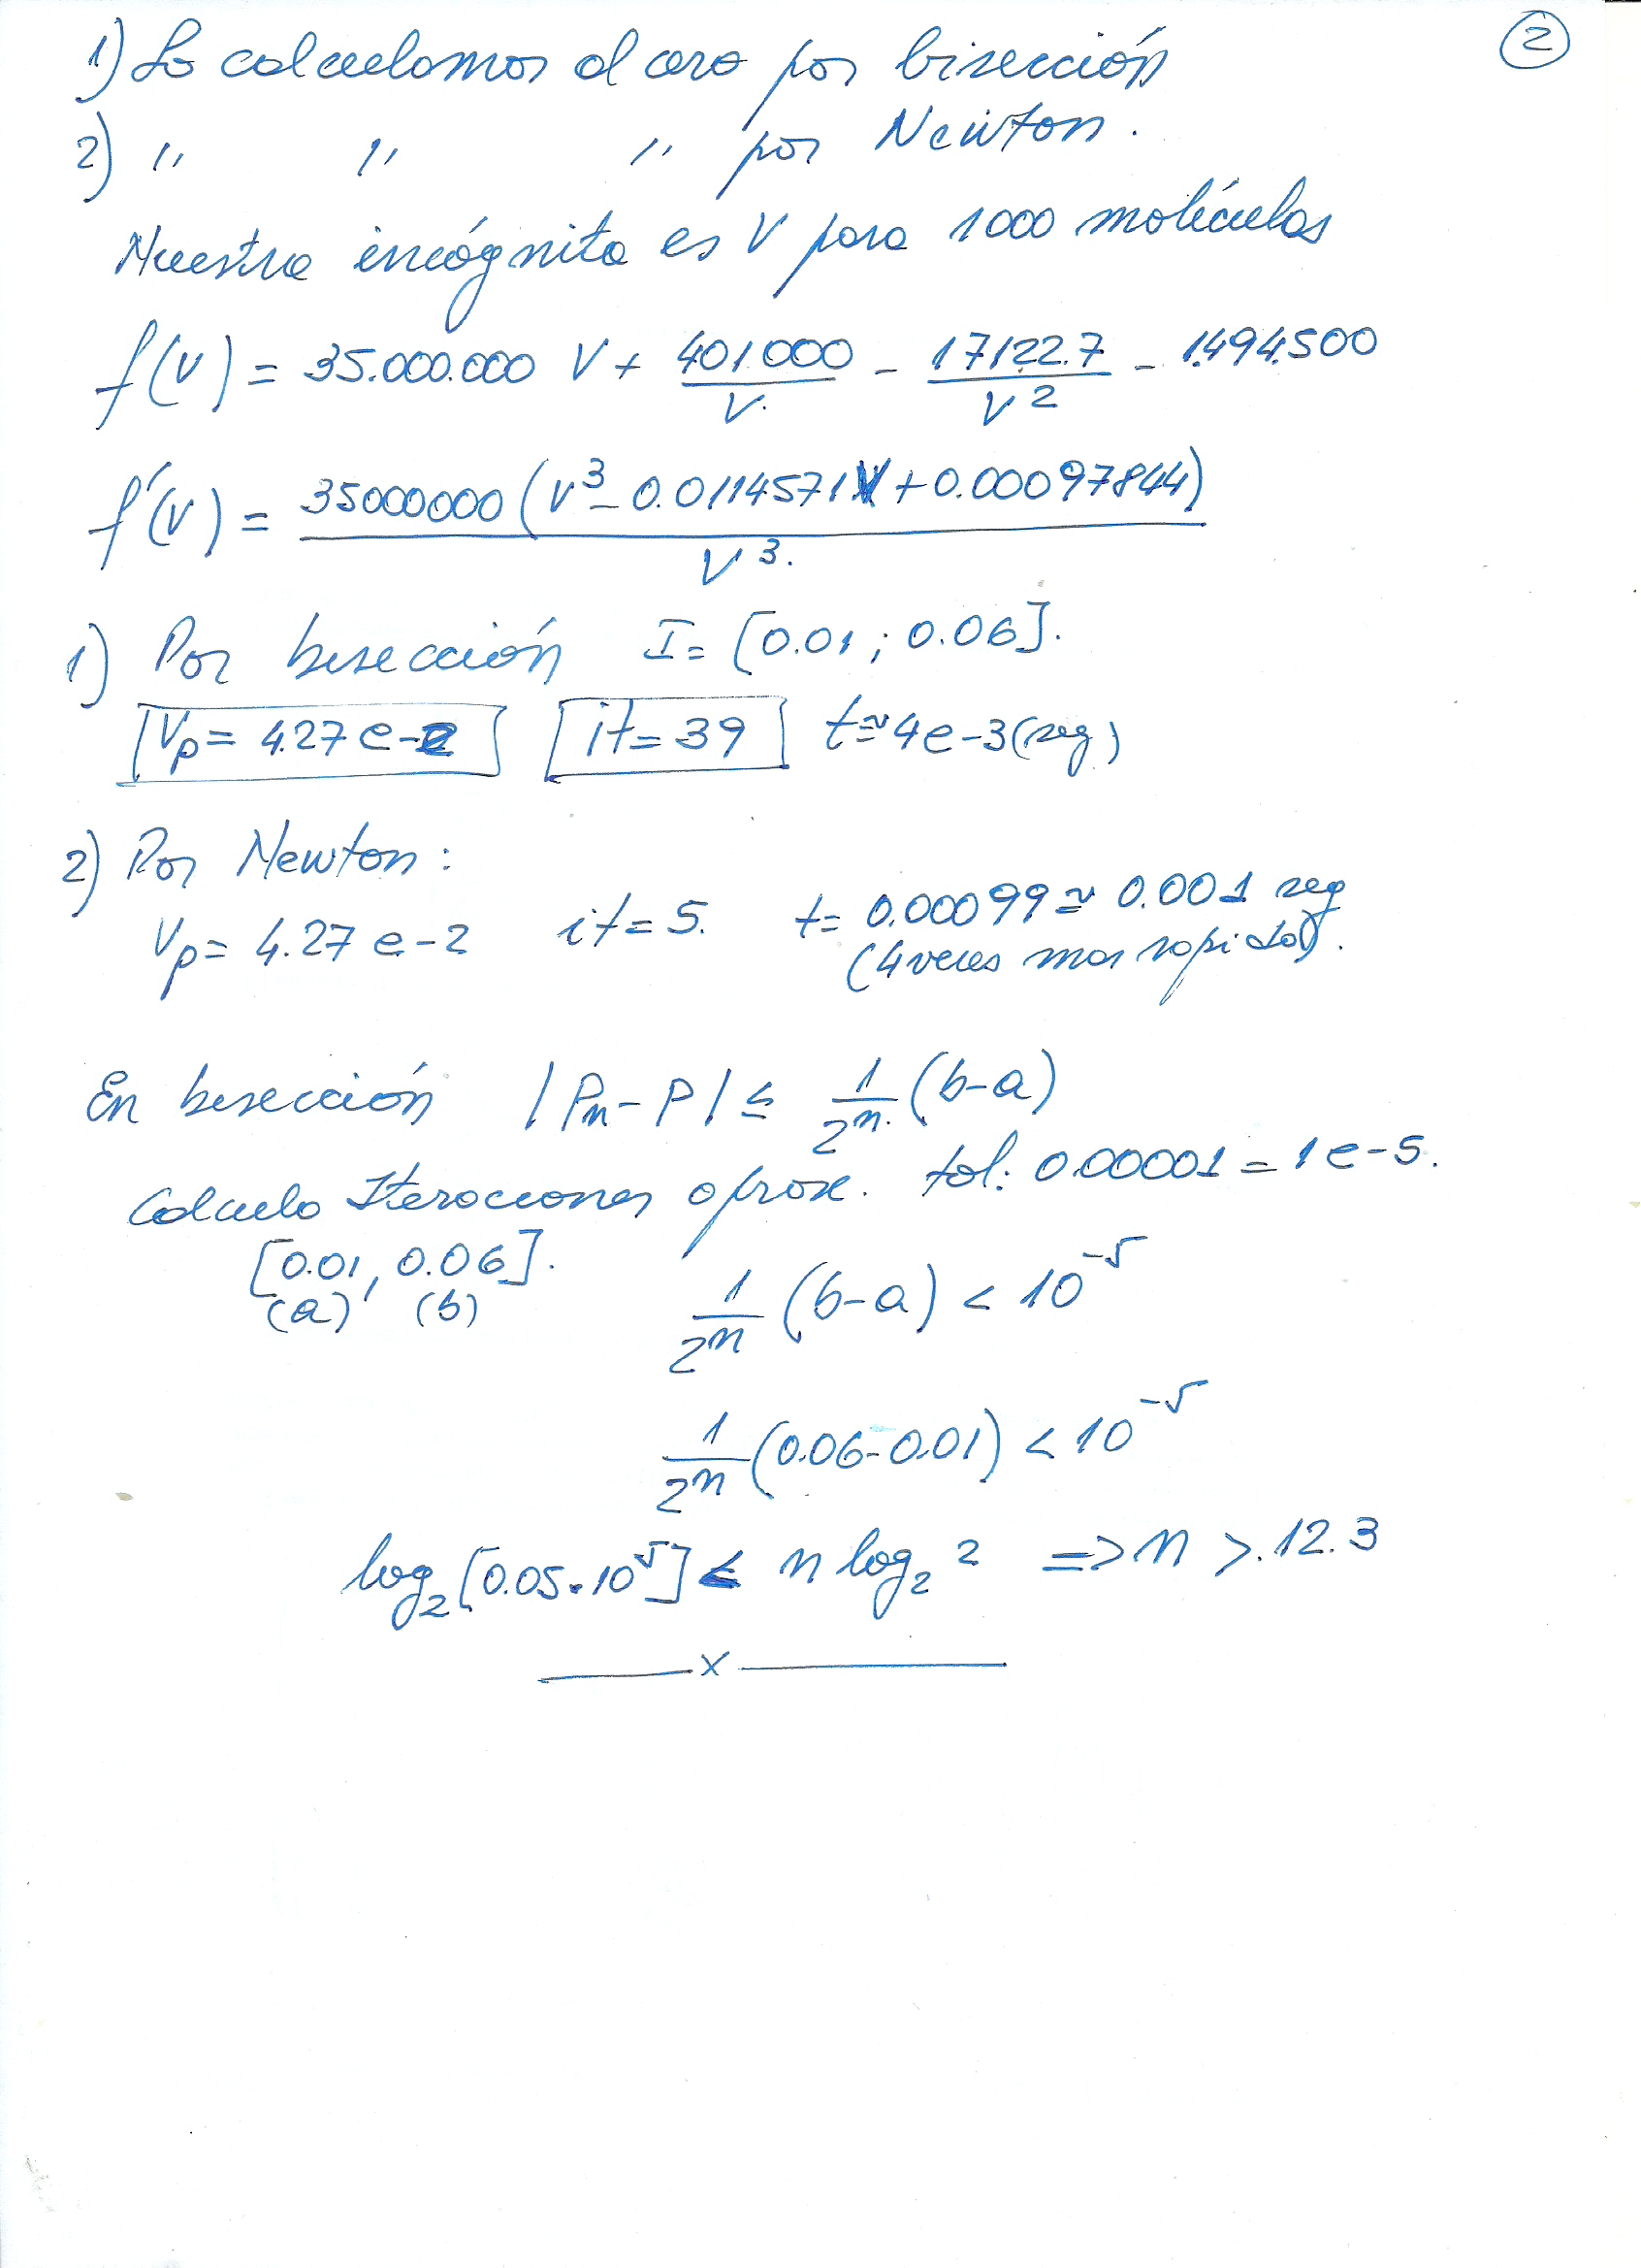 ②
1) Lo calculamos el cero por bisección
2) ,, ,, ,, por Newton.
Nuestra incógnita es V para 1000 moléculas
f(v) = 35.000.000 V + 401.000/V. - 17122.7/V² - 1.494.500
f'(v) = 35000000 (V³ - 0.0114571 V + 0.00097844)/V³.
1) Por bisección I = [0.01 ; 0.06].
Vp = 4.27 e-2 it = 39 t ≈ 4e-3 (seg)
2) Por Newton:
Vp = 4.27 e-2 it = 5. t = 0.00099 ≈ 0.001 seg
(4 veces mas rapido).
En bisección |Pn - P| ≤ 1/2ⁿ. (b-a)
Calculo Iteraciones aprox. tol: 0.00001 = 1e-5.
[0.01, 0.06].
(a) (b)
1/2ⁿ (b-a) < 10⁻⁵
1/2ⁿ (0.06-0.01) < 10⁻⁵
log₂ [0.05.10⁵] < n log₂ 2 => n >. 12.3
x